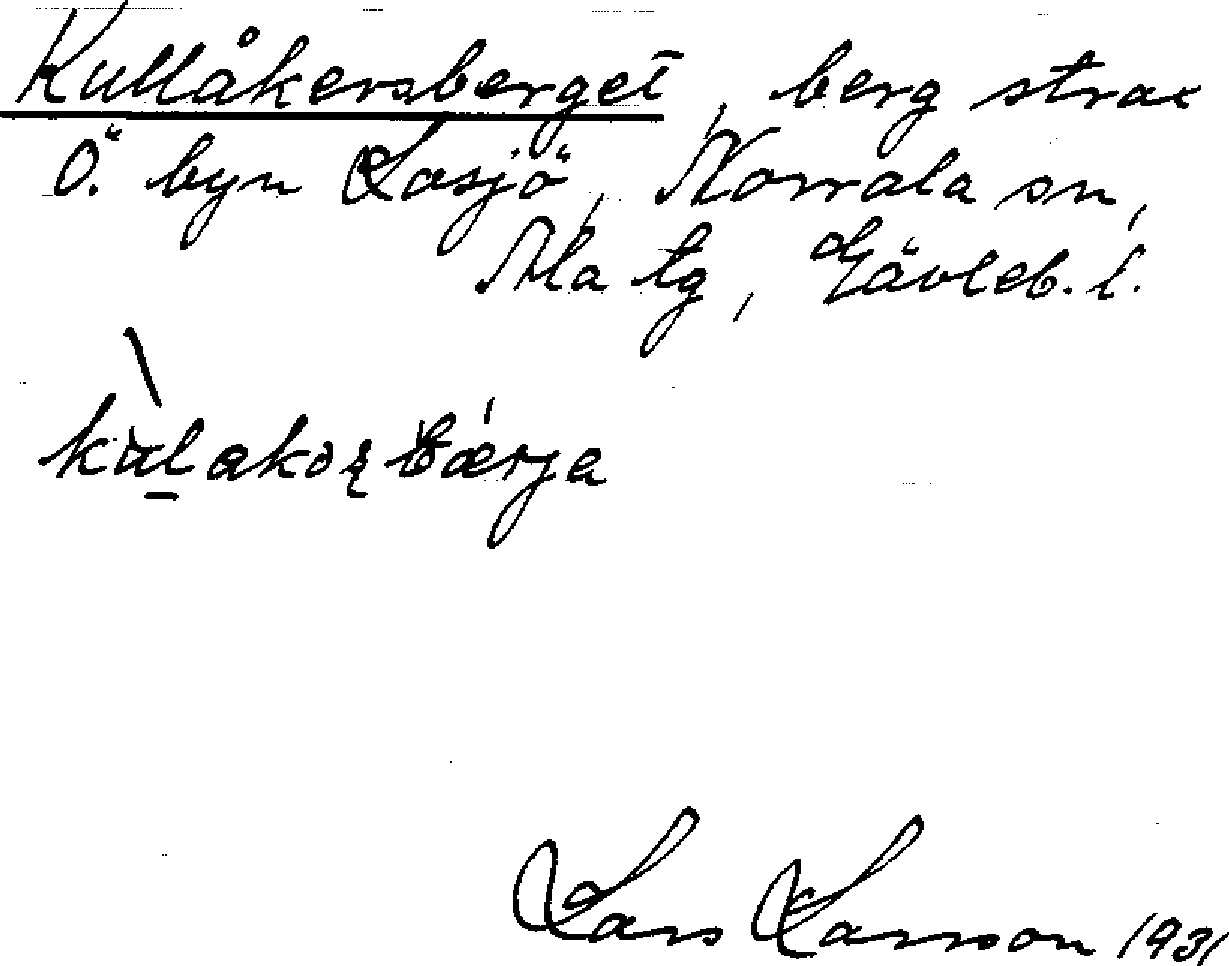 Kullåkersberget, berg strax
Ö. byn Losjö, Norrala sn,
Ala tg, Gävleb. l.
kùlakoʂbǽrja
Lars Larsson 1931